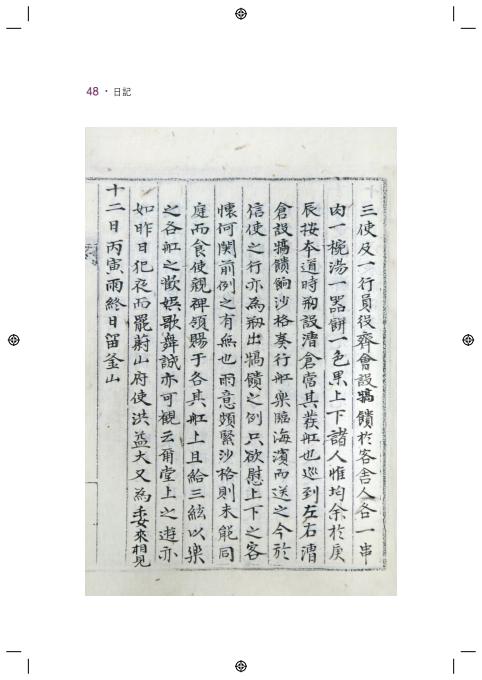 48 · 日記
三使及一行員役齊會設犒饋於客舍人各一串
肉一椀湯一器餠一色果上下諸人惟均余於庚
辰按本道時刱設漕倉當其裝舡也巡到左右漕
倉設犒饋餉沙格奏行舡樂臨海濱而送之今於
信使之行亦為刱出犒饋之例只欲慰上下之客
懷何関前例之有無也雨意頗緊沙格則未能同
庭而食使親裨領賜于各其舡上且給三絃以樂
之各舡之歡娛歌舞誠亦可觀云爾堂上之遊亦
如昨日犯夜而罷蔚山府使洪益大又為委來相見
十二日丙寅雨終日留釜山